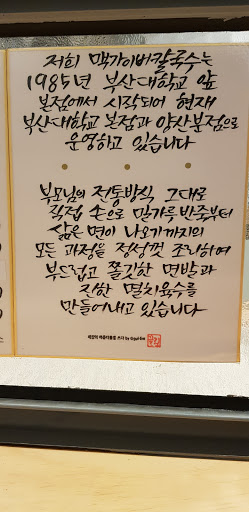 저희 맥가이버칼국수는
1985년 부산대학교 앞
본점에서 시작되어 현재
부산대학교 본점과 양산분점으로
운영하고 있습니다
부모님의 전통방식 그대로
직접 손으로 밀가루 반죽부터
삶은 면이 나오기까지의
모든 과정을 정성껏 조리하여
부드럽고 쫄깃한 면발과
진한 멸치육수를
만들어내고 있습니다